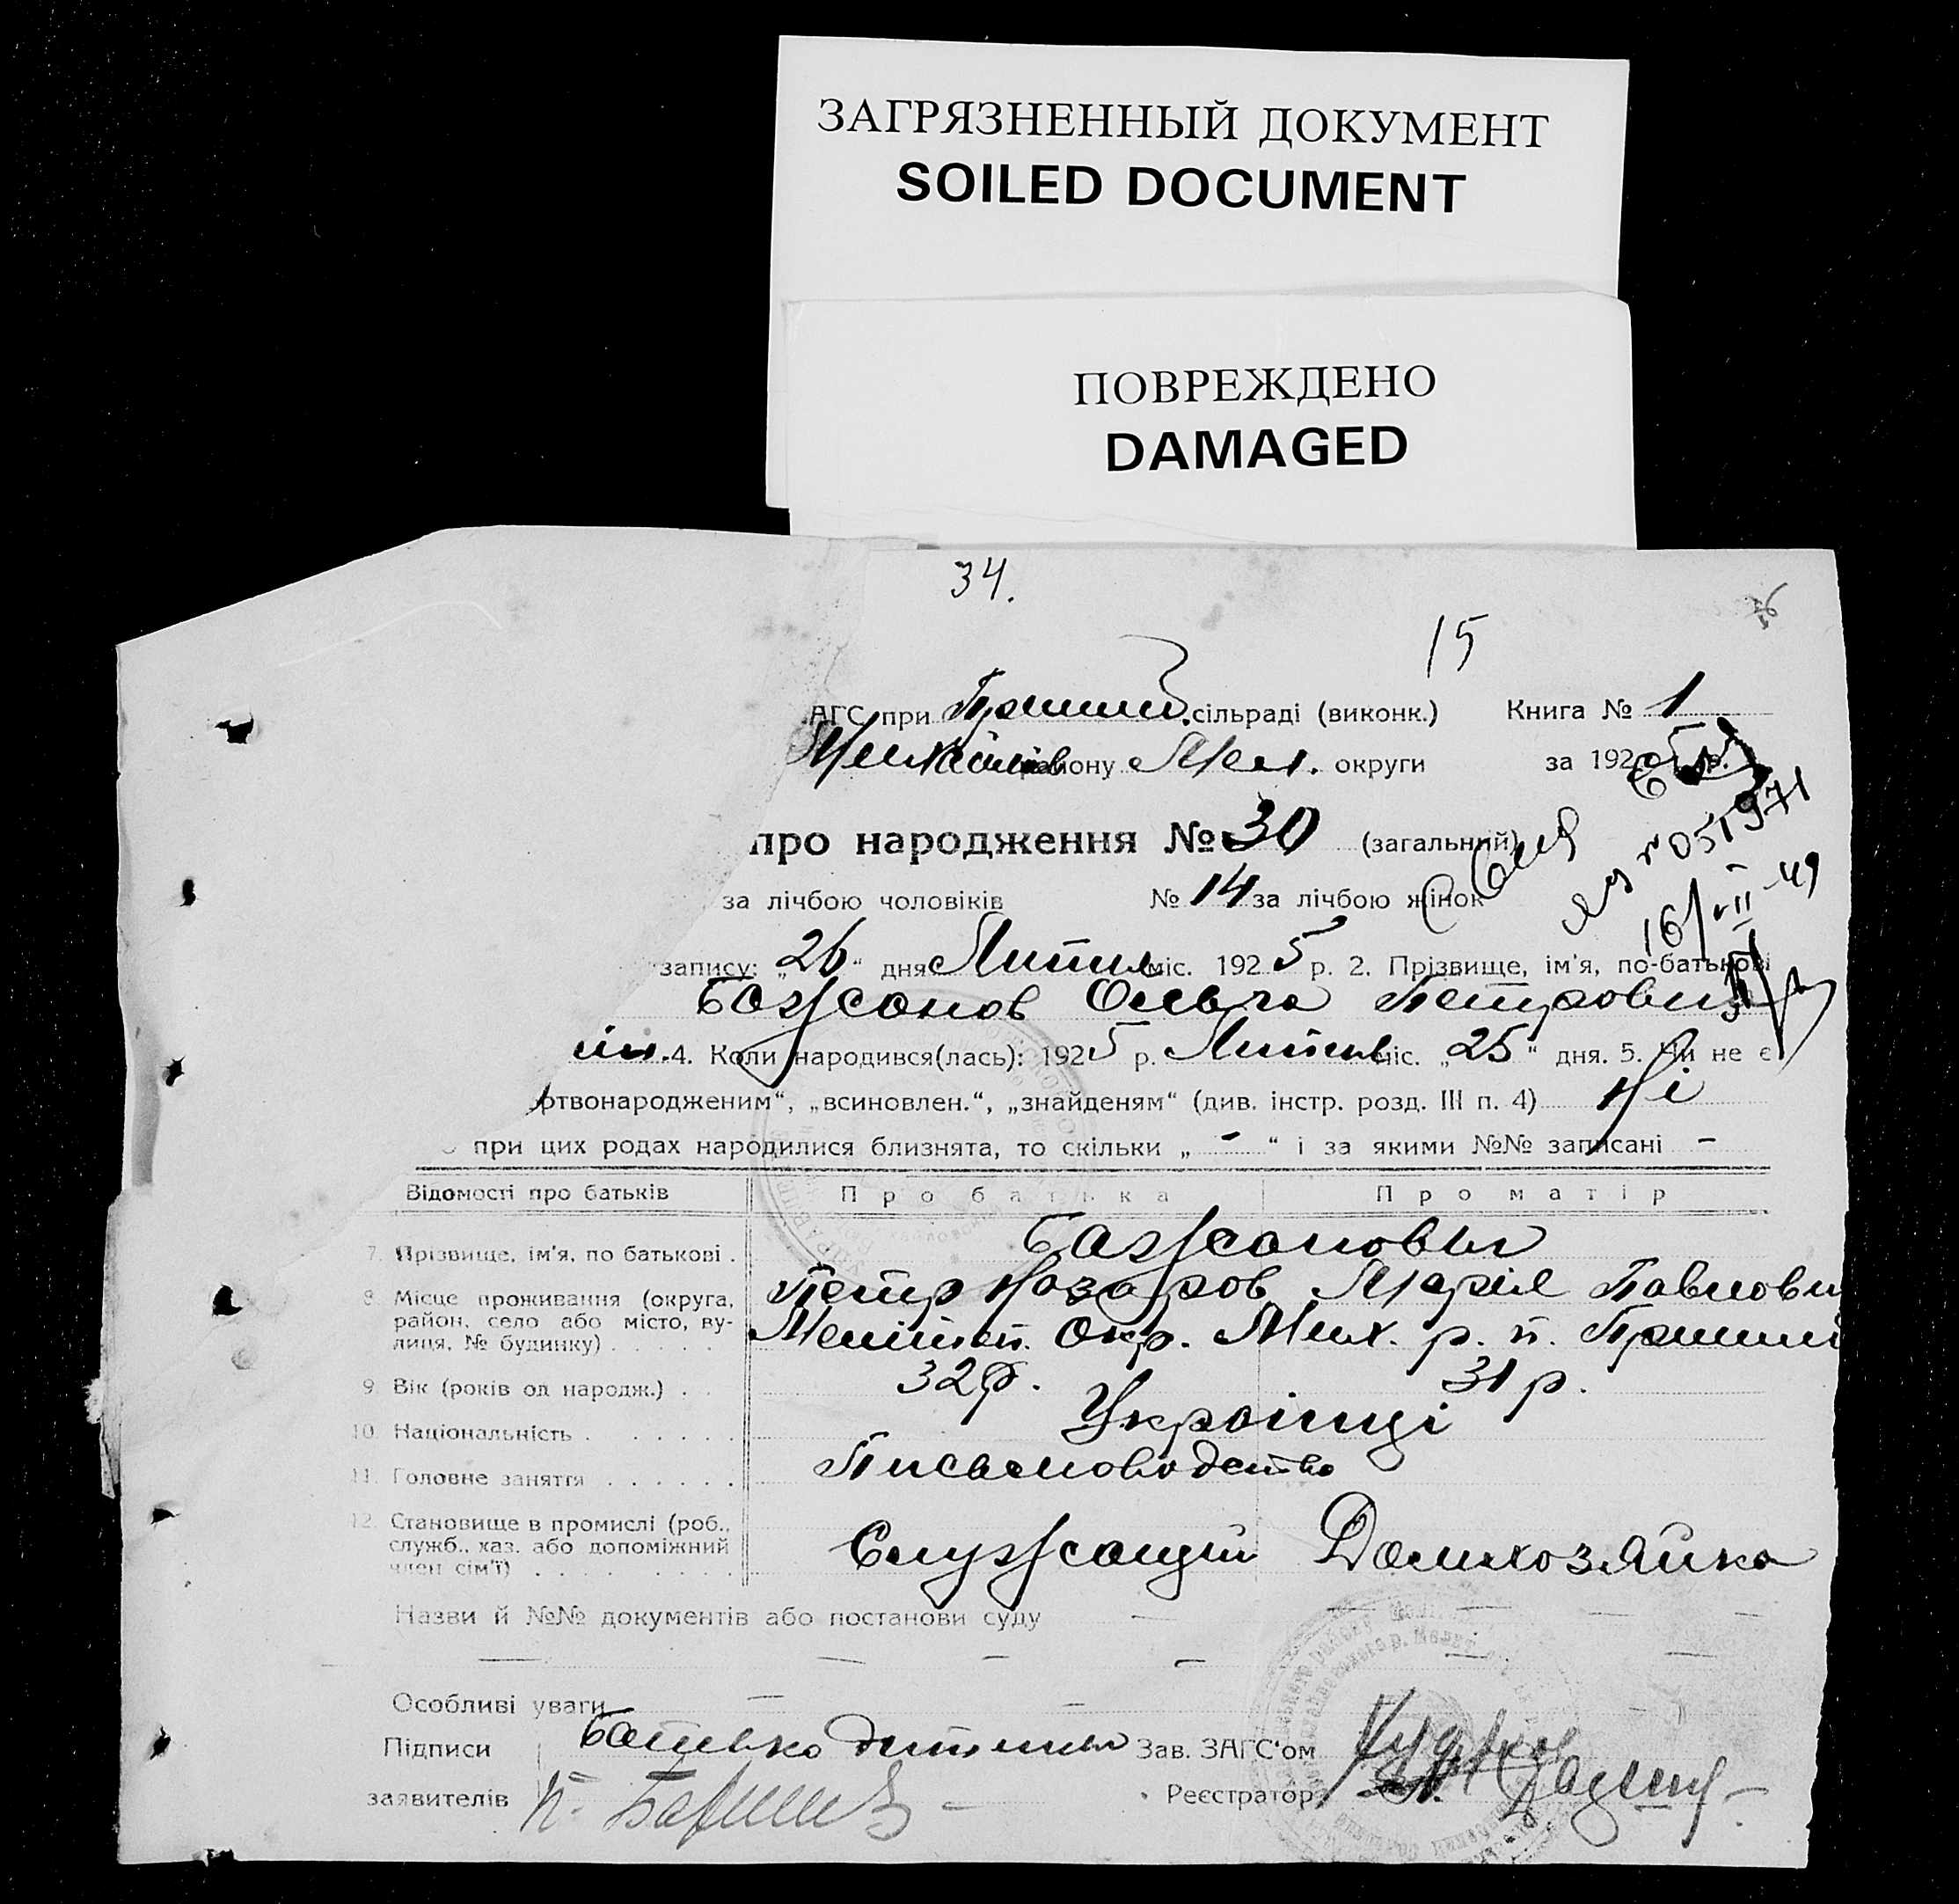 ЗАГРЯЗНЕННЫЙ ДОКУМЕНТ
SOILED DOCUMENT
ПОВРЕЖДЕНО
DAMAGED
34.
15
АГС при сільраді (виконк.) Книга № 1
району округи за 1925 р.
про народження № 30 (загальний)
за лічбою чоловіків № 14 за лічбою жінок
№ 051971
16/VII-49
запису: „26“ дня Липня міс. 1925 р. 2. Прізвище, ім'я, по-батькові
Бажанов Ольга Петровна
4. Коли народився(лась): 1925 р. Липня міс. „25“ дня. 5. Чи не є
ртвонародженим“, „всиновлен.“, „знайденям“ (див. інстр. розд. III п. 4) Ні
при цих родах народилися близнята, то скільки „ - “ і за якими №№ записані -
Відомості про батьків Про батька Про матір
7. Прізвище, ім'я, по батькові . Бажановы
Петр Назаров Марія Павловн
8. Місце проживання (округа, район, село або місто, вулиця, № будинку) . . . . . Меліт. Окр. Мих. р. п. Пришиб
9. Вік (років од народж.) . . 32 р. 31 р.
10. Національність . . . . . . Українці
11. Головне заняття . . . . . . Письмоводство
12. Становище в промислі (роб., служб., хаз. або допоміжний член сім'ї) . . . . . . Служащий Домохозяйка
Назви й №№ документів або постанови суду —
Особливі уваги —
Підписи Батько дитини Зав. ЗАГС'ом
заявителів П. Реєстратор